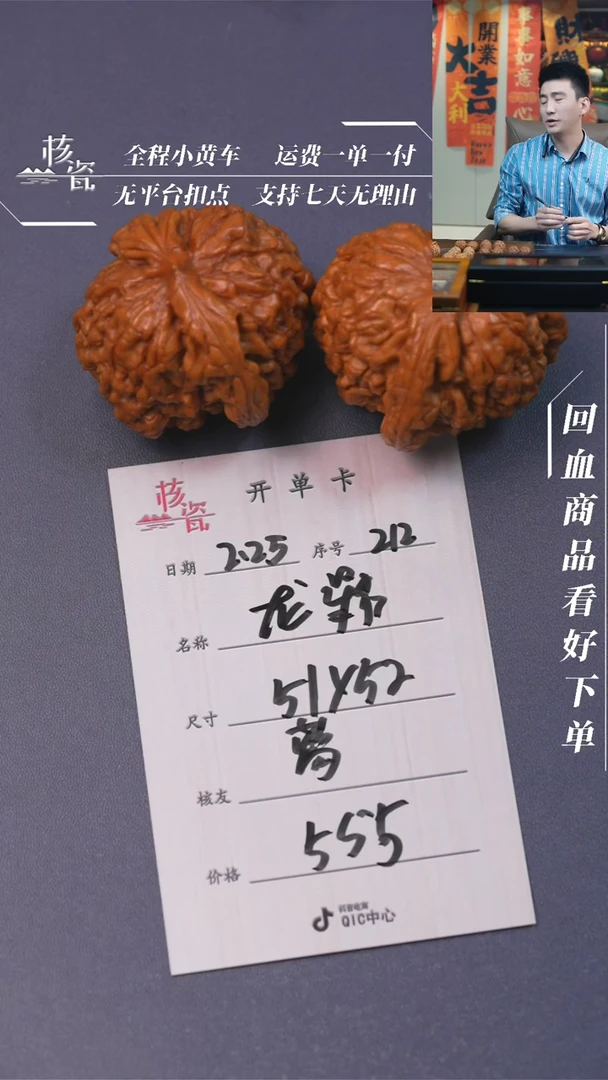 開業
大吉
大利
事事如意
心
财
核瓷
全程小黄车 运费一单一付
无平台扣点 支持七天无理由
回血商品看好下单
核瓷 开单卡
日期 2.25 序号 212
名称 龙
尺寸 51×52
核友 梦
价格 555
抖音电商
QIC中心